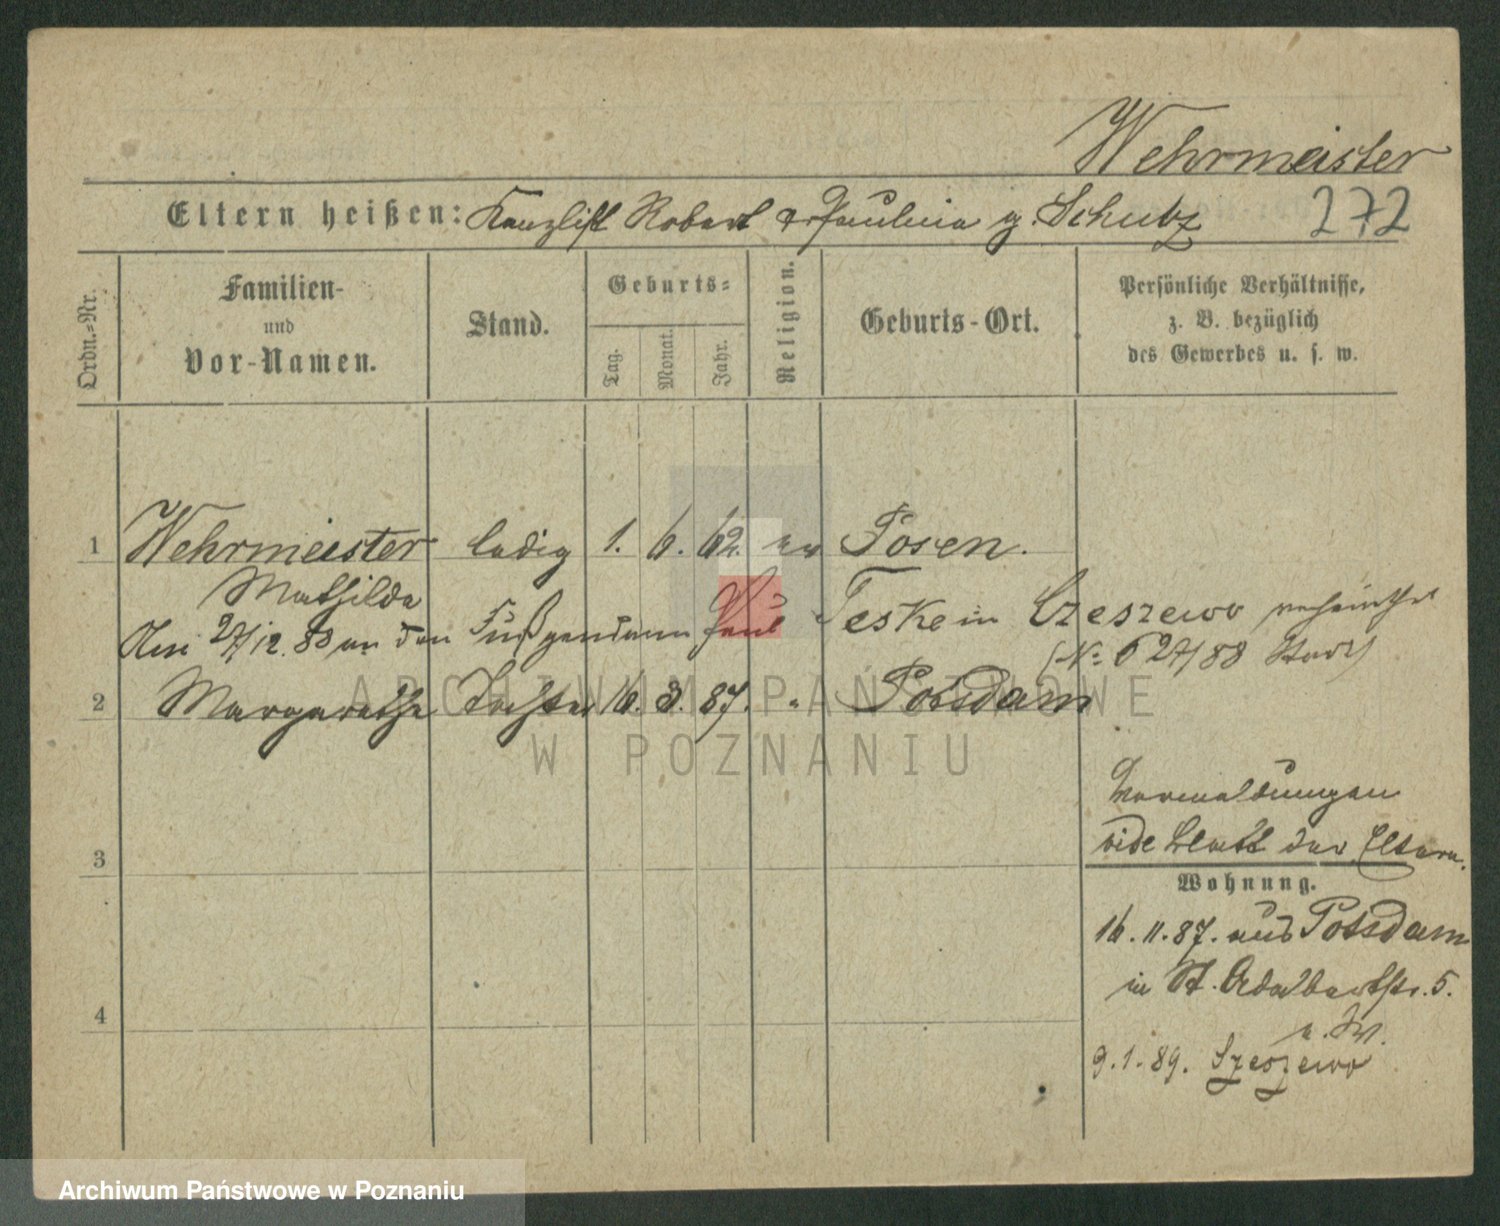 Wehrmeister
Eltern heißen: Kanzlist Robert Paulina g. Schulz 272
Ordn.-Nr.
Familien-
und
Vor-Namen.
Stand.
Geburts-
Tag.
Monat.
Jahr.
Religion.
Geburts-Ort.
Persönliche Verhältnisse,
z. B. bezüglich
des Gewerbes u. s. w.
1 Wehrmeister ledig 1. 6. 62. ev Posen.
Mathilde
27/12. 88 an den Fußgendarm Paul Teske in Czeszewo verheirathet
(No 627/88 Stard)
2 Margarethe Tochter 16. 3. 87. " Potsdam
3
vide Blatt der Eltern.
Wohnung.
16. 11. 87. aus Potsdam
in St. Adalbertstr. 5.
4
9. 1. 89. Czeszewo
ARCHIWUM PAŃSTWOWE
W POZNANIU
Archiwum Państwowe w Poznaniu